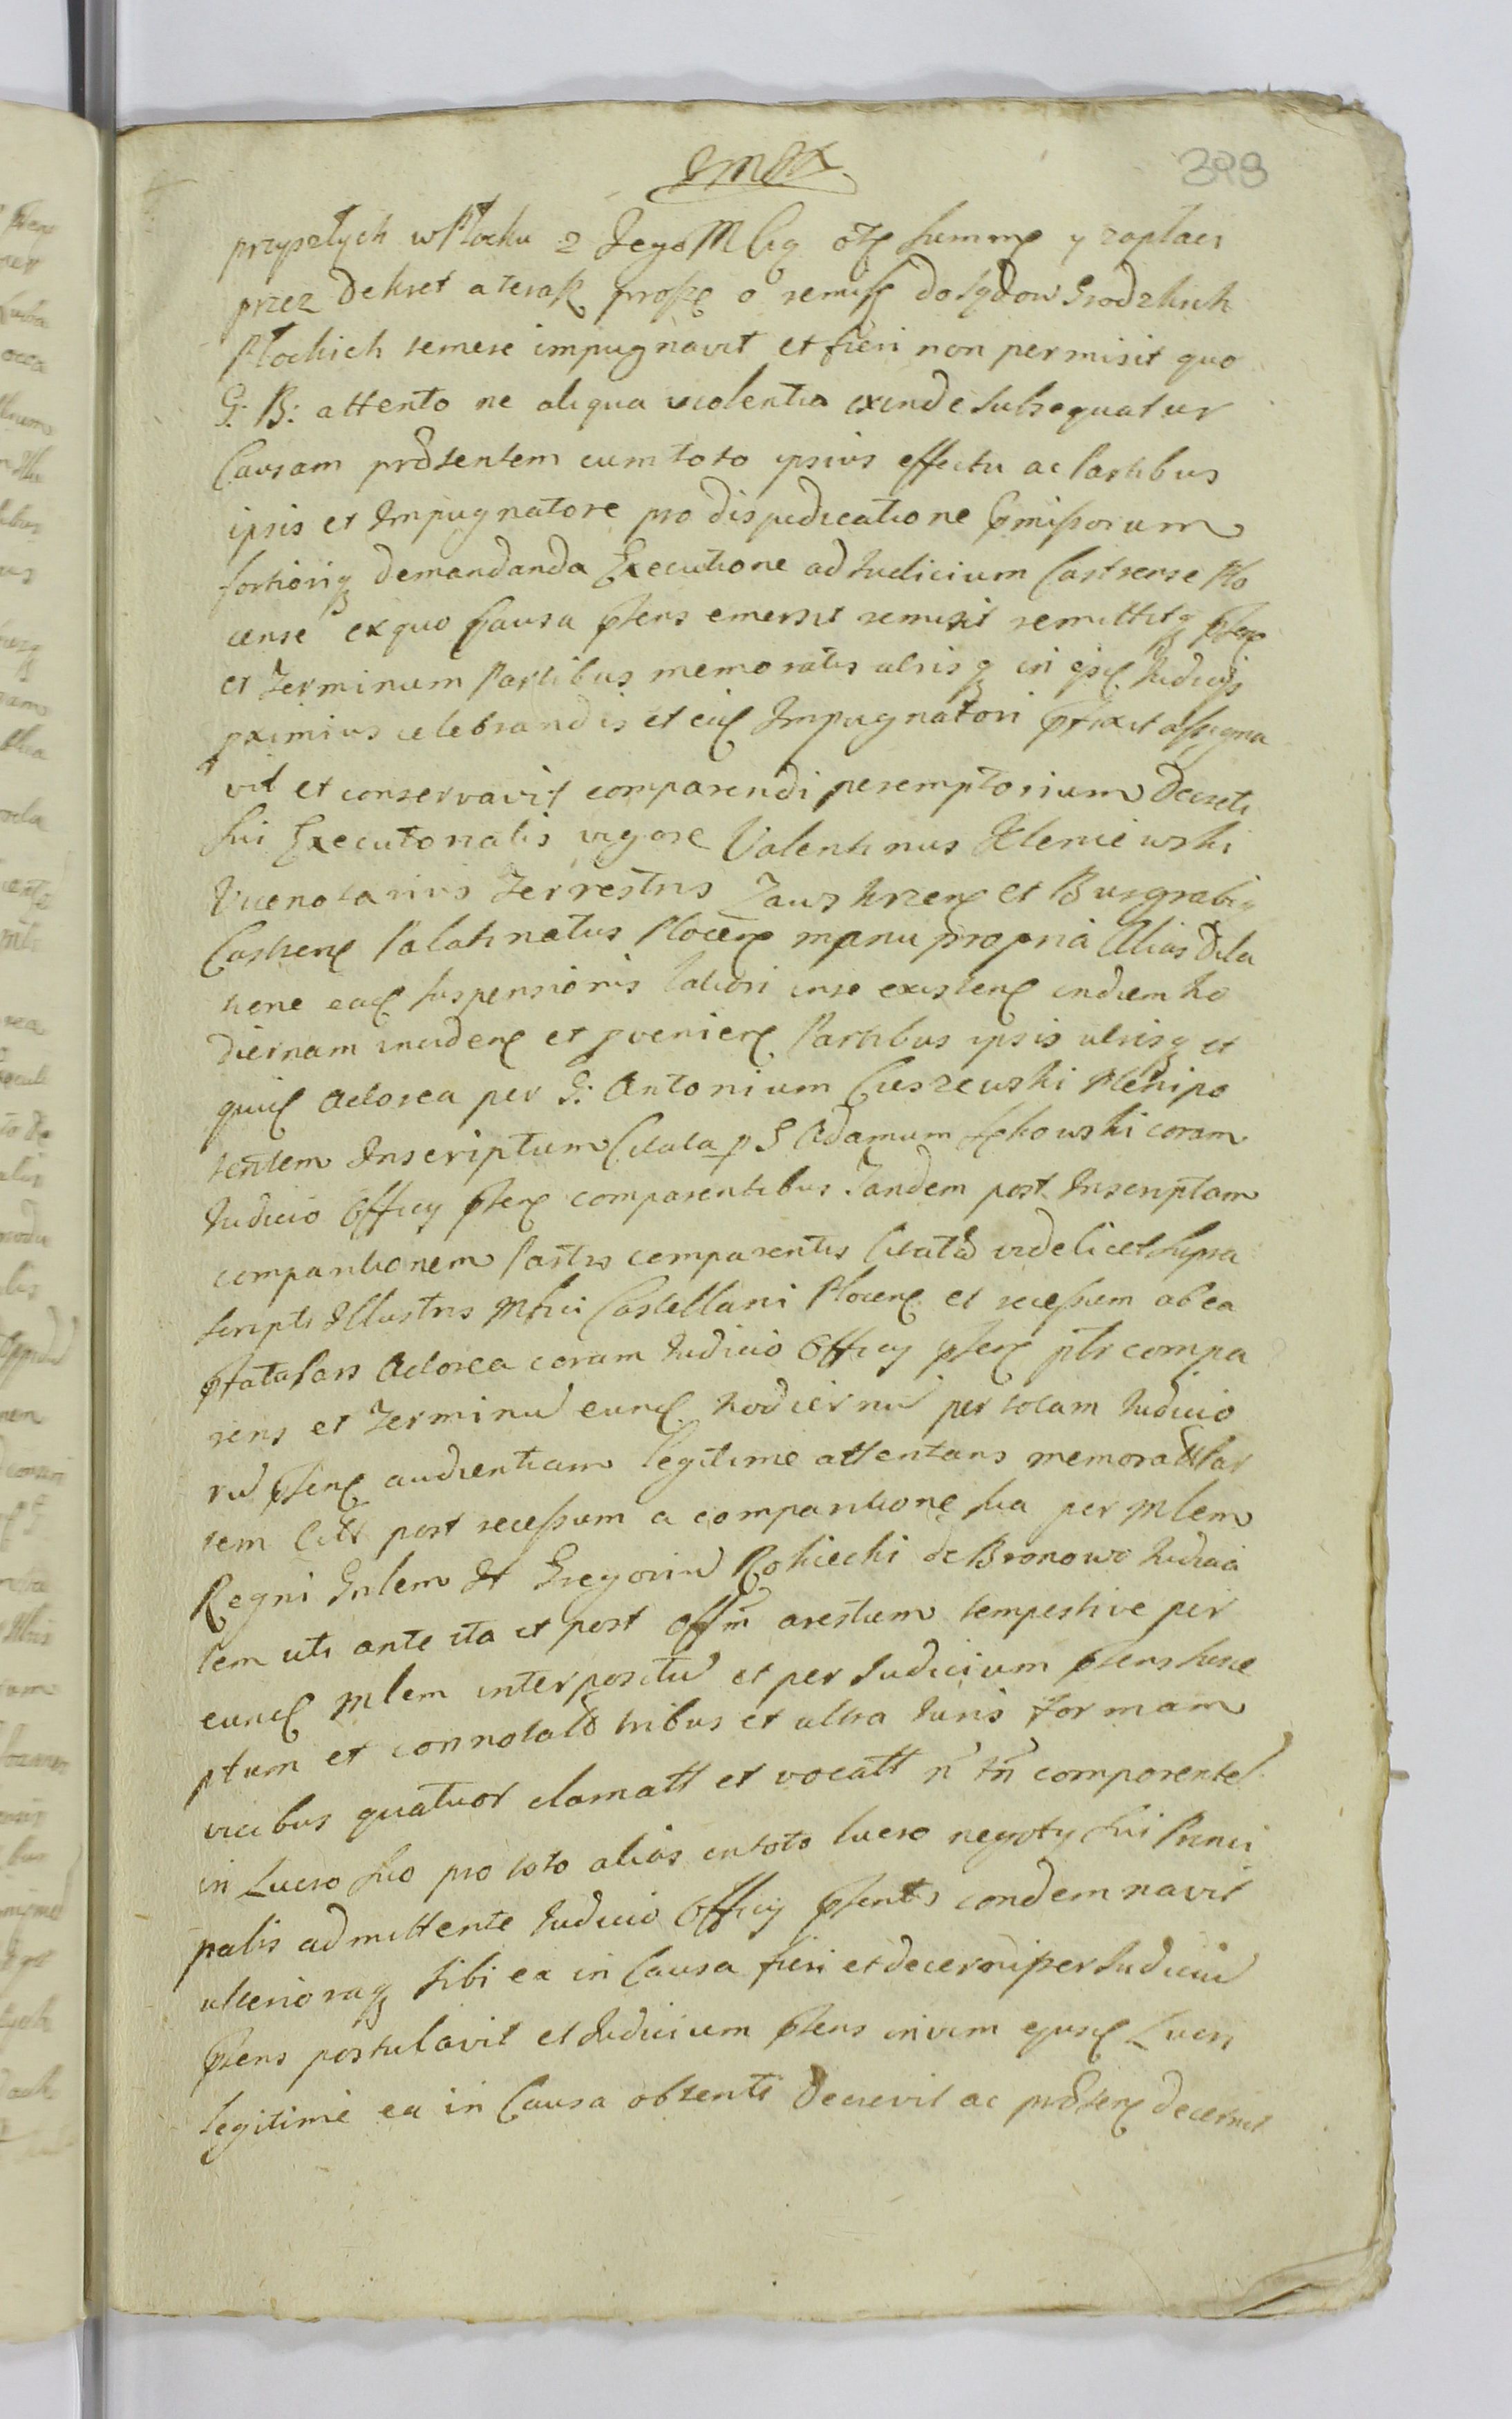 399
przyszłych w Płocku z Jego Mścią o tę summę y zapłaci
przez Dekret a teraß proßę o remiß do sądow Grodzkich
Płockich temere impugnavit et fieri non permisit quo
G: B: attento ne aliqua violentia exinde subsequatur
Causam prdsentem cum toto ipsius effectu ac Partibus
ipsis et Impugnatore pro dispudicatione pmissorum
fortioriq demandanda Executione ad Iudicium Castrense Plo
cense ex quo Causa psens emersit remisit remittitq psen
et Terminum Partibus memoratis utrisq in ejsd Iudicijs
pximius celebrandis et eid Impugnatori pfixit assigna
vit et conservavit comparendi peremptorium Decreti
sui Executorialis vigore Valentinus Kleniewski
Vicenotarius Terrestris Zawskrzen et Burgrabig
Castren Palatinatus Plocen manu propria Alias dila
tione ead suspensionis latiori inse existen indiem ho
diernam inciden et pvenien Partibus ipsis utrisq et
quid Actorea per G: Antonium Cieszewski Plenipo
tentem Inscriptum Citata p G Adamum kowski coram
Iudicio Officij psen comparentibus Tandem post Inscriptam
comparitionem Partis comparentis Citatæ videlicet supra
scripti Illustris Mfici Castellani Plocen et recessum ab ea
pfata Pars Actorea coram Iudicio Officij psen pltr compa
rens et Terminū eund hodiernū per totam Iudicio
rū psen audientiam legitime attentans memoratt Par
tem Citt post recessum a comparitione sua per Mlem
Regni Gnlem et Gregoriū Rokicki de Bronowo Iudicia
lem uti ante ita et post Offm arestum tempestive per
eund Mlem interpositū et per Iudicium psens susce
ptum et connotatt tribus et ultra Iuris formam
vicibus quatuor clamatt et vocatt n tn comparentē
in Lucro suo pro toto alias in toto lucro negotij sui Princi
palis admittente Iudicio Officij psentis condemnavit
ulterioraq sibi ea in Causa fieri et decerni per Iudiciū
psens postulavit et Iudicium psens invim ejusd Lucri
legitime ea in Causa obtenti Decrevit ac prdsen decernit